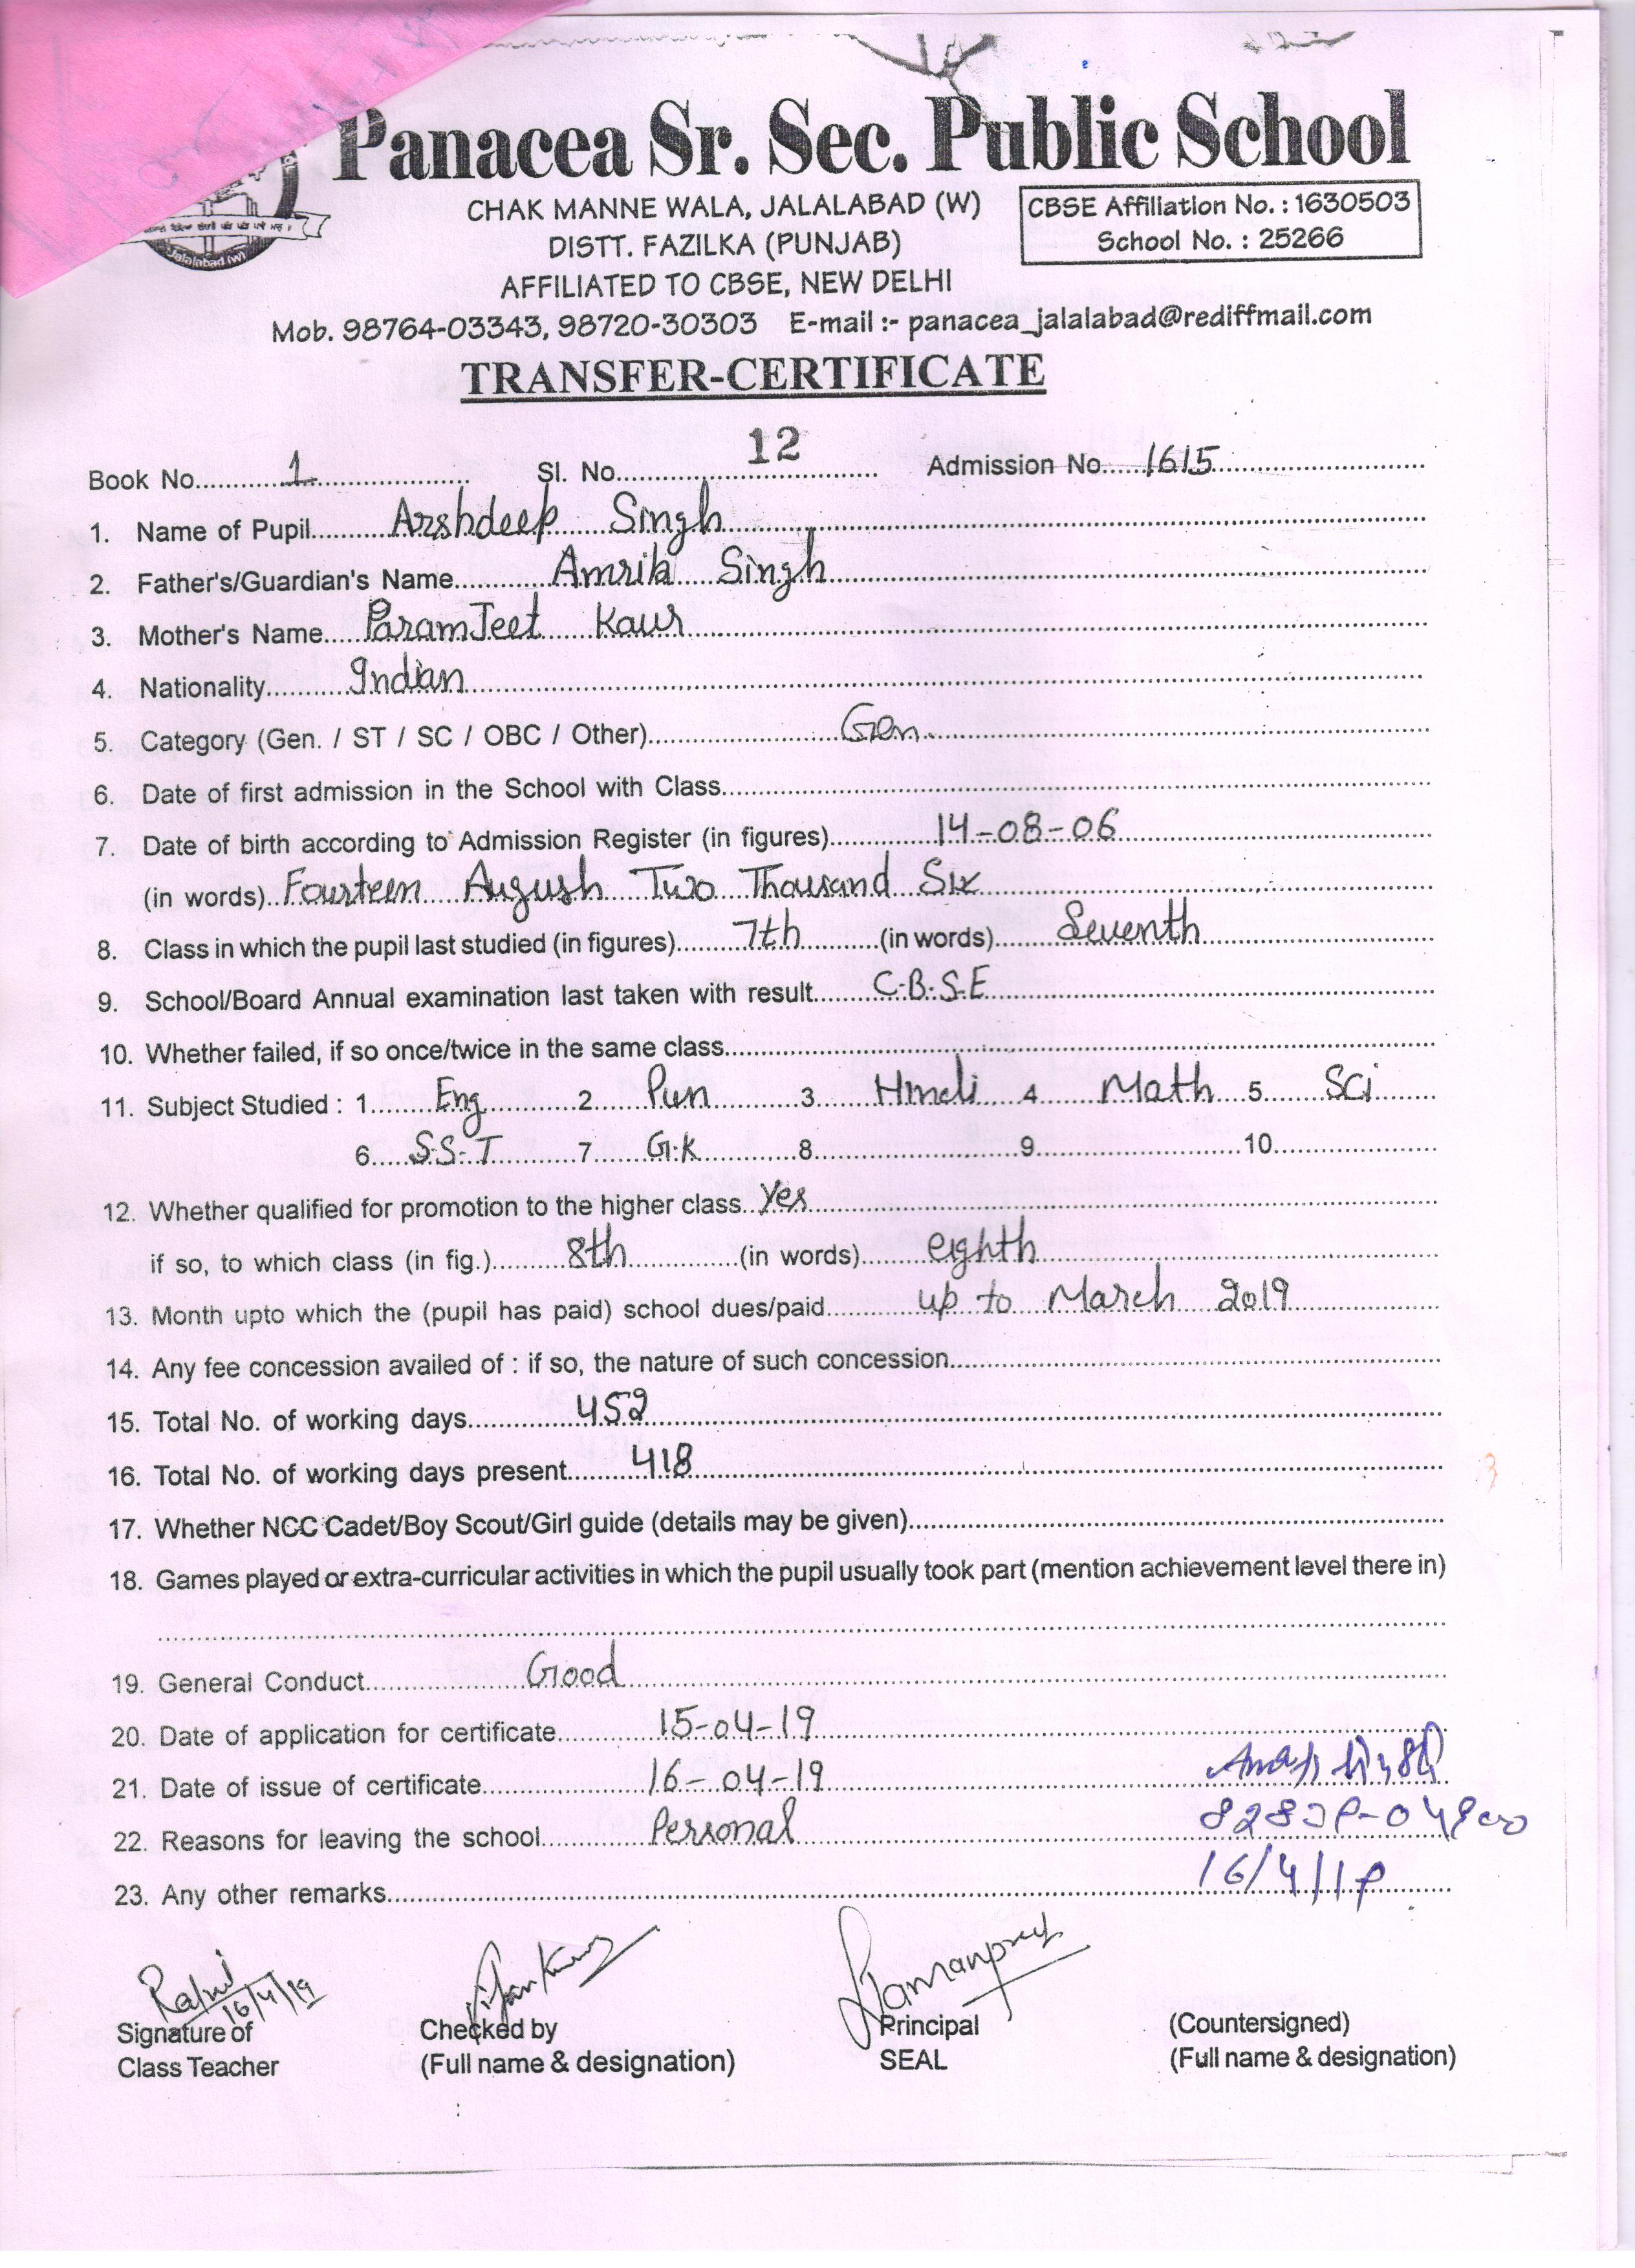 Panacea Sr. Sec. Public School
CHAK MANNE WALA, JALALABAD (W)
CBSE Affiliation No. : 1630503
DISTT. FAZILKA (PUNJAB)
School No. : 25266
AFFILIATED TO CBSE, NEW DELHI
Jalalabad (W)
Mob. 98764-03343, 98720-30303 E-mail :- panacea_jalalabad@rediffmail.com
TRANSFER-CERTIFICATE
Book No. 1 Sl. No. 12 Admission No. 1615
1. Name of Pupil Arshdeep Singh
2. Father's/Guardian's Name Amrik Singh
3. Mother's Name ParamJeet Kaur
4. Nationality Indian
5. Category (Gen. / ST / SC / OBC / Other) Gen.
6. Date of first admission in the School with Class
7. Date of birth according to Admission Register (in figures) 14-08-06
(in words) Fourteen Augush Two Thousand Six
8. Class in which the pupil last studied (in figures) 7th (in words) Seventh
9. School/Board Annual examination last taken with result C.B.S.E
10. Whether failed, if so once/twice in the same class
11. Subject Studied : 1 Eng 2 Pun 3 Hindi 4 Math 5 SCi
6 S.S.T 7 G.K 8 9 10
12. Whether qualified for promotion to the higher class yes
if so, to which class (in fig.) 8th (in words) eighth
13. Month upto which the (pupil has paid) school dues/paid up to March 2019
14. Any fee concession availed of : if so, the nature of such concession
15. Total No. of working days 452
16. Total No. of working days present 418
17. Whether NCC Cadet/Boy Scout/Girl guide (details may be given)
18. Games played or extra-curricular activities in which the pupil usually took part (mention achievement level there in)
19. General Conduct Good
20. Date of application for certificate 15-04-19
21. Date of issue of certificate 16-04-19
22. Reasons for leaving the school Personal
23. Any other remarks 16/4/19
Rahul 16/4/19
Signature of Checked by Principal (Countersigned)
Class Teacher (Full name & designation) SEAL (Full name & designation)